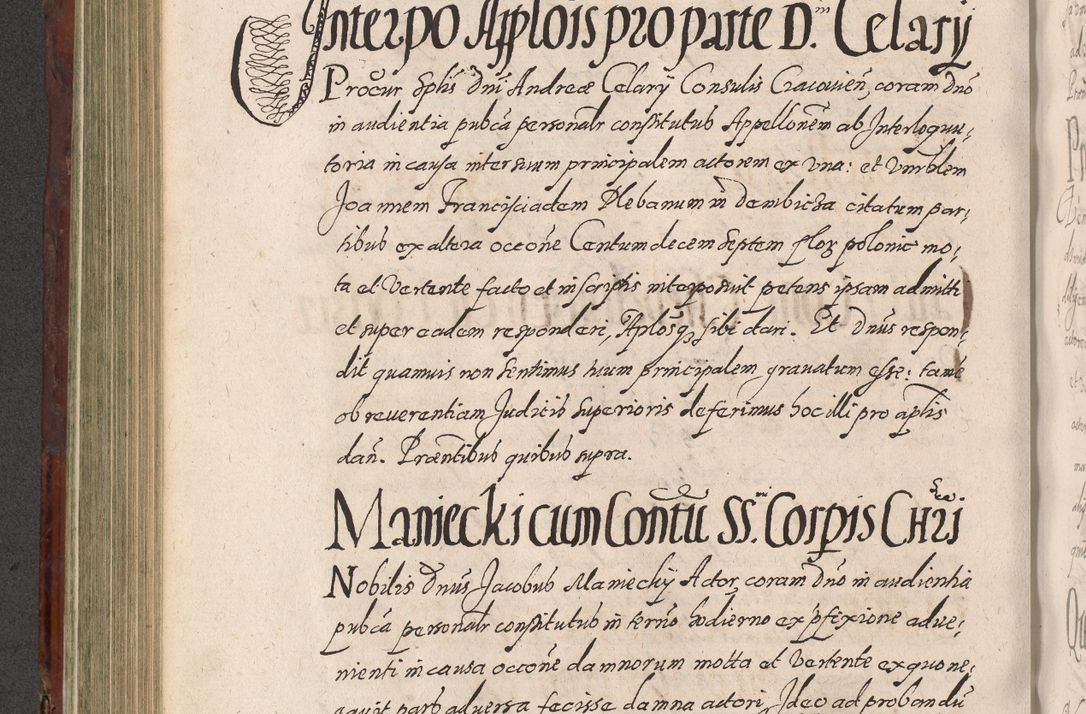 Interpo Applõis pro parte D.ni Celarÿ
Procur̃ Splis Dñi Andreæ Celarÿ Consulis Cracouień, coram Dño
in audientia pubca personalr constitutus Appellonem ab Interloquu,
toria in causa inter suum principalem actorem ex una: et Vnrblem
Joannem Francisciadem Plebanum in Dembicza citatum par,
tibus ex altera occone Centum decem septem flor polonic mo,
ta et vertente facto et in scriptis interposuit petens ipsam admitti
et super eadem responderi, Aplosq, sibi dari. Et Dnus respon,
dit quamuis non sentimus huum principalem grauatum esse: tamẽ
ob reuerentiam Judicis superioris deferimus hoc illi pro aplis
dañ. Præntibus quibus supra.
Maniecki cum Contũ SS.mi Corpis CHRI
Nobilis Dnus Jacobus Maniecky Actor, coram Dño in audientia
pubca personalr constitutus in terno hodierno ex pfixione adue,
nienti in causa occone damnorum motta et vertente ex quo ne,
gauit pars aduersa fecisse damna actori, Ideo ad probandũ